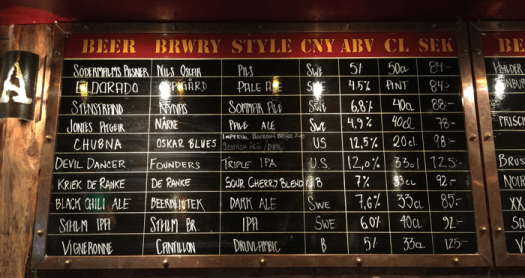 A
BEER BRWRY STYLE CNY ABV CL SEK
SÖDERMALMS PILSNER NILS OSCAR PILS SWE 5% 50cl 84:-
ELDORADO PALE ALE 4.5% PINT 84:-
STENSTRAND SOMMAR ALE SWE 6.8% 40cl 88:-
NÄRKE PALE ALE SWE 4.9% 40cl 78:-
CHUBNA OSKAR BLUES IMPERIAL US 12,5% 20cl 98:-
DEVIL DANCER FOUNDERS TRIPLE IPA U.S. 12,0% 33cl 125:-
KRIEK DE RANKE DE RANKE SOUR CHERRY BLEND B 7% 33cl 92:-
BLACK CHILI ALE BEERBLIOTEK DARK ALE SWE 7,6% 33cl 85:-
STHLM IPA STHLM BR. IPA SWE 6.0% 40cl 92:-
VIGNERONNE CANTILLON DRUVLAMBIC B 5% 33cl 125:-